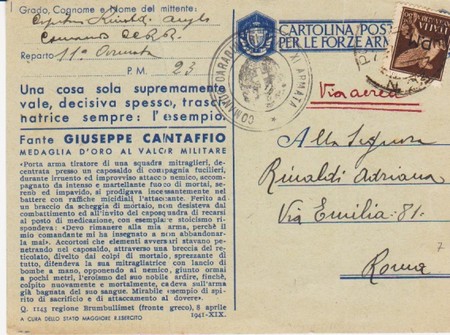 Grado, Cognome e Nome del mittente:
Rinaldi
Comando CC.RR.
Reparto 11ª Armata
P. M. 23
Una cosa sola supremamente
vale, decisiva spesso, trasci-
natrice sempre: l'esempio.
Fante GIUSEPPE CANTAFFIO
MEDAGLIA D'ORO AL VALOR MILITARE
«Porta arma tiratore di una squadra mitraglieri, de-
centrata presso un caposaldo di compagnia fucilieri,
durante irruento ed improvviso attacco nemico, accom-
pagnato da intenso e martellante fuoco di mortai, se-
reno ed impavido, si prodigava incessantemente nel
battere con raffiche micidiali l'attaccante. Ferito ad
un braccio da scheggia di mortaio, non desisteva dal
combattimento ed all'invito del caposquadra di recarsi
al posto di medicazione, con esemplare stoicismo ri-
spondeva: «Devo rimanere alla mia arma, perchè il
mio comandante mi ha insegnato a non abbandonar-
la mai». Accortosi che elementi avversari stavano pe-
netrando nel caposaldo, attraverso una breccia del re-
ticolato, divelto dai colpi di mortaio, sprezzante di
tutto, difendeva la sua mitragliatrice con lancio di
bombe a mano, opponendo al nemico, giunto ormai
a pochi metri, l'eroismo del suo nobile ardire, finchè,
colpito nuovamente e mortalmente, cadeva sull'arma
già bagnata del suo sangue. Mirabile esempio di spi-
rito di sacrificio e di attaccamento al dovere».
Q. 1143 regione Brumbullimet (fronte greco), 8 aprile
1941-XIX.
A CURA DELLO STATO MAGGIORE R.ESERCITO
CARTOLINA POST
PER LE FORZE ARM
XI ARMATA
Via aerea
Alla Signora
Rinaldi Adriana
Via Emilia 81.
Roma
7